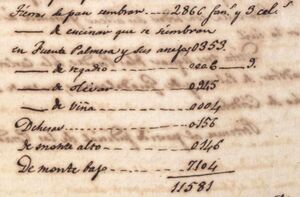 Tierras de pan sembrar.....2866 fan.s y 3 cel.s
— de encinar que se siembran
en Fuente Palmera y sus anejos 0353.
— de regadio ........ 0006 — 9.
— de olivar ........ 0945
— de viña ........ 0004
Dehesas ........ 0156
de monte alto ........ 0146
De monte bajo ........ 7104
11581